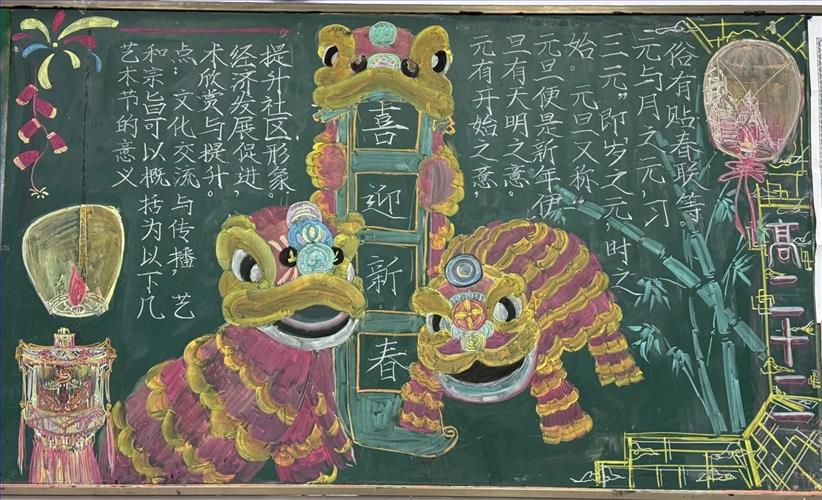 艺术节的意义
和宗旨可以概括为以下几
点：文化交流与传播，艺
术欣赏与提升。
经济发展促进，
提升社区形象。
喜迎新春
元有开始之意，
旦有天明之意。
元旦便是新年伊
始。元旦又称“
三元”即岁之元，时之
元与月之元，习
俗有贴春联等。
高二十二